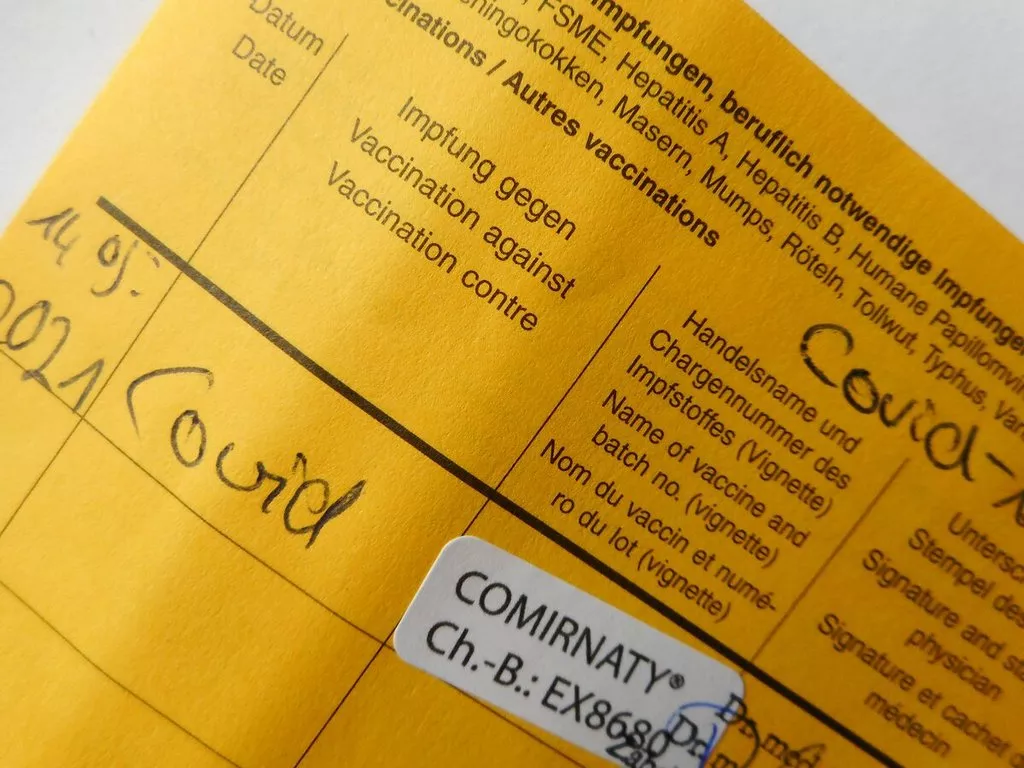 Impfungen, beruflich notwendige Impfungen
FSME, Hepatitis A, Hepatitis B, Humane Papillomvi
ningokokken, Masern, Mumps, Röteln, Tollwut, Typhus, Var
cinations / Autres vaccinations
Covid-1
Datum
Date
Impfung gegen
Vaccination against
Vaccination contre
Handelsname und
Chargennummer des
Impfstoffes (Vignette)
Name of vaccine and
batch no. (vignette)
Nom du vaccin et numé-
ro du lot (vignette)
Untersch
Stempel des
Signature and st
physician
Signature et cachet d
médecin
14 05.
2021
Covid
COMIRNATY®
Ch.-B.: EX8680
Dr. med